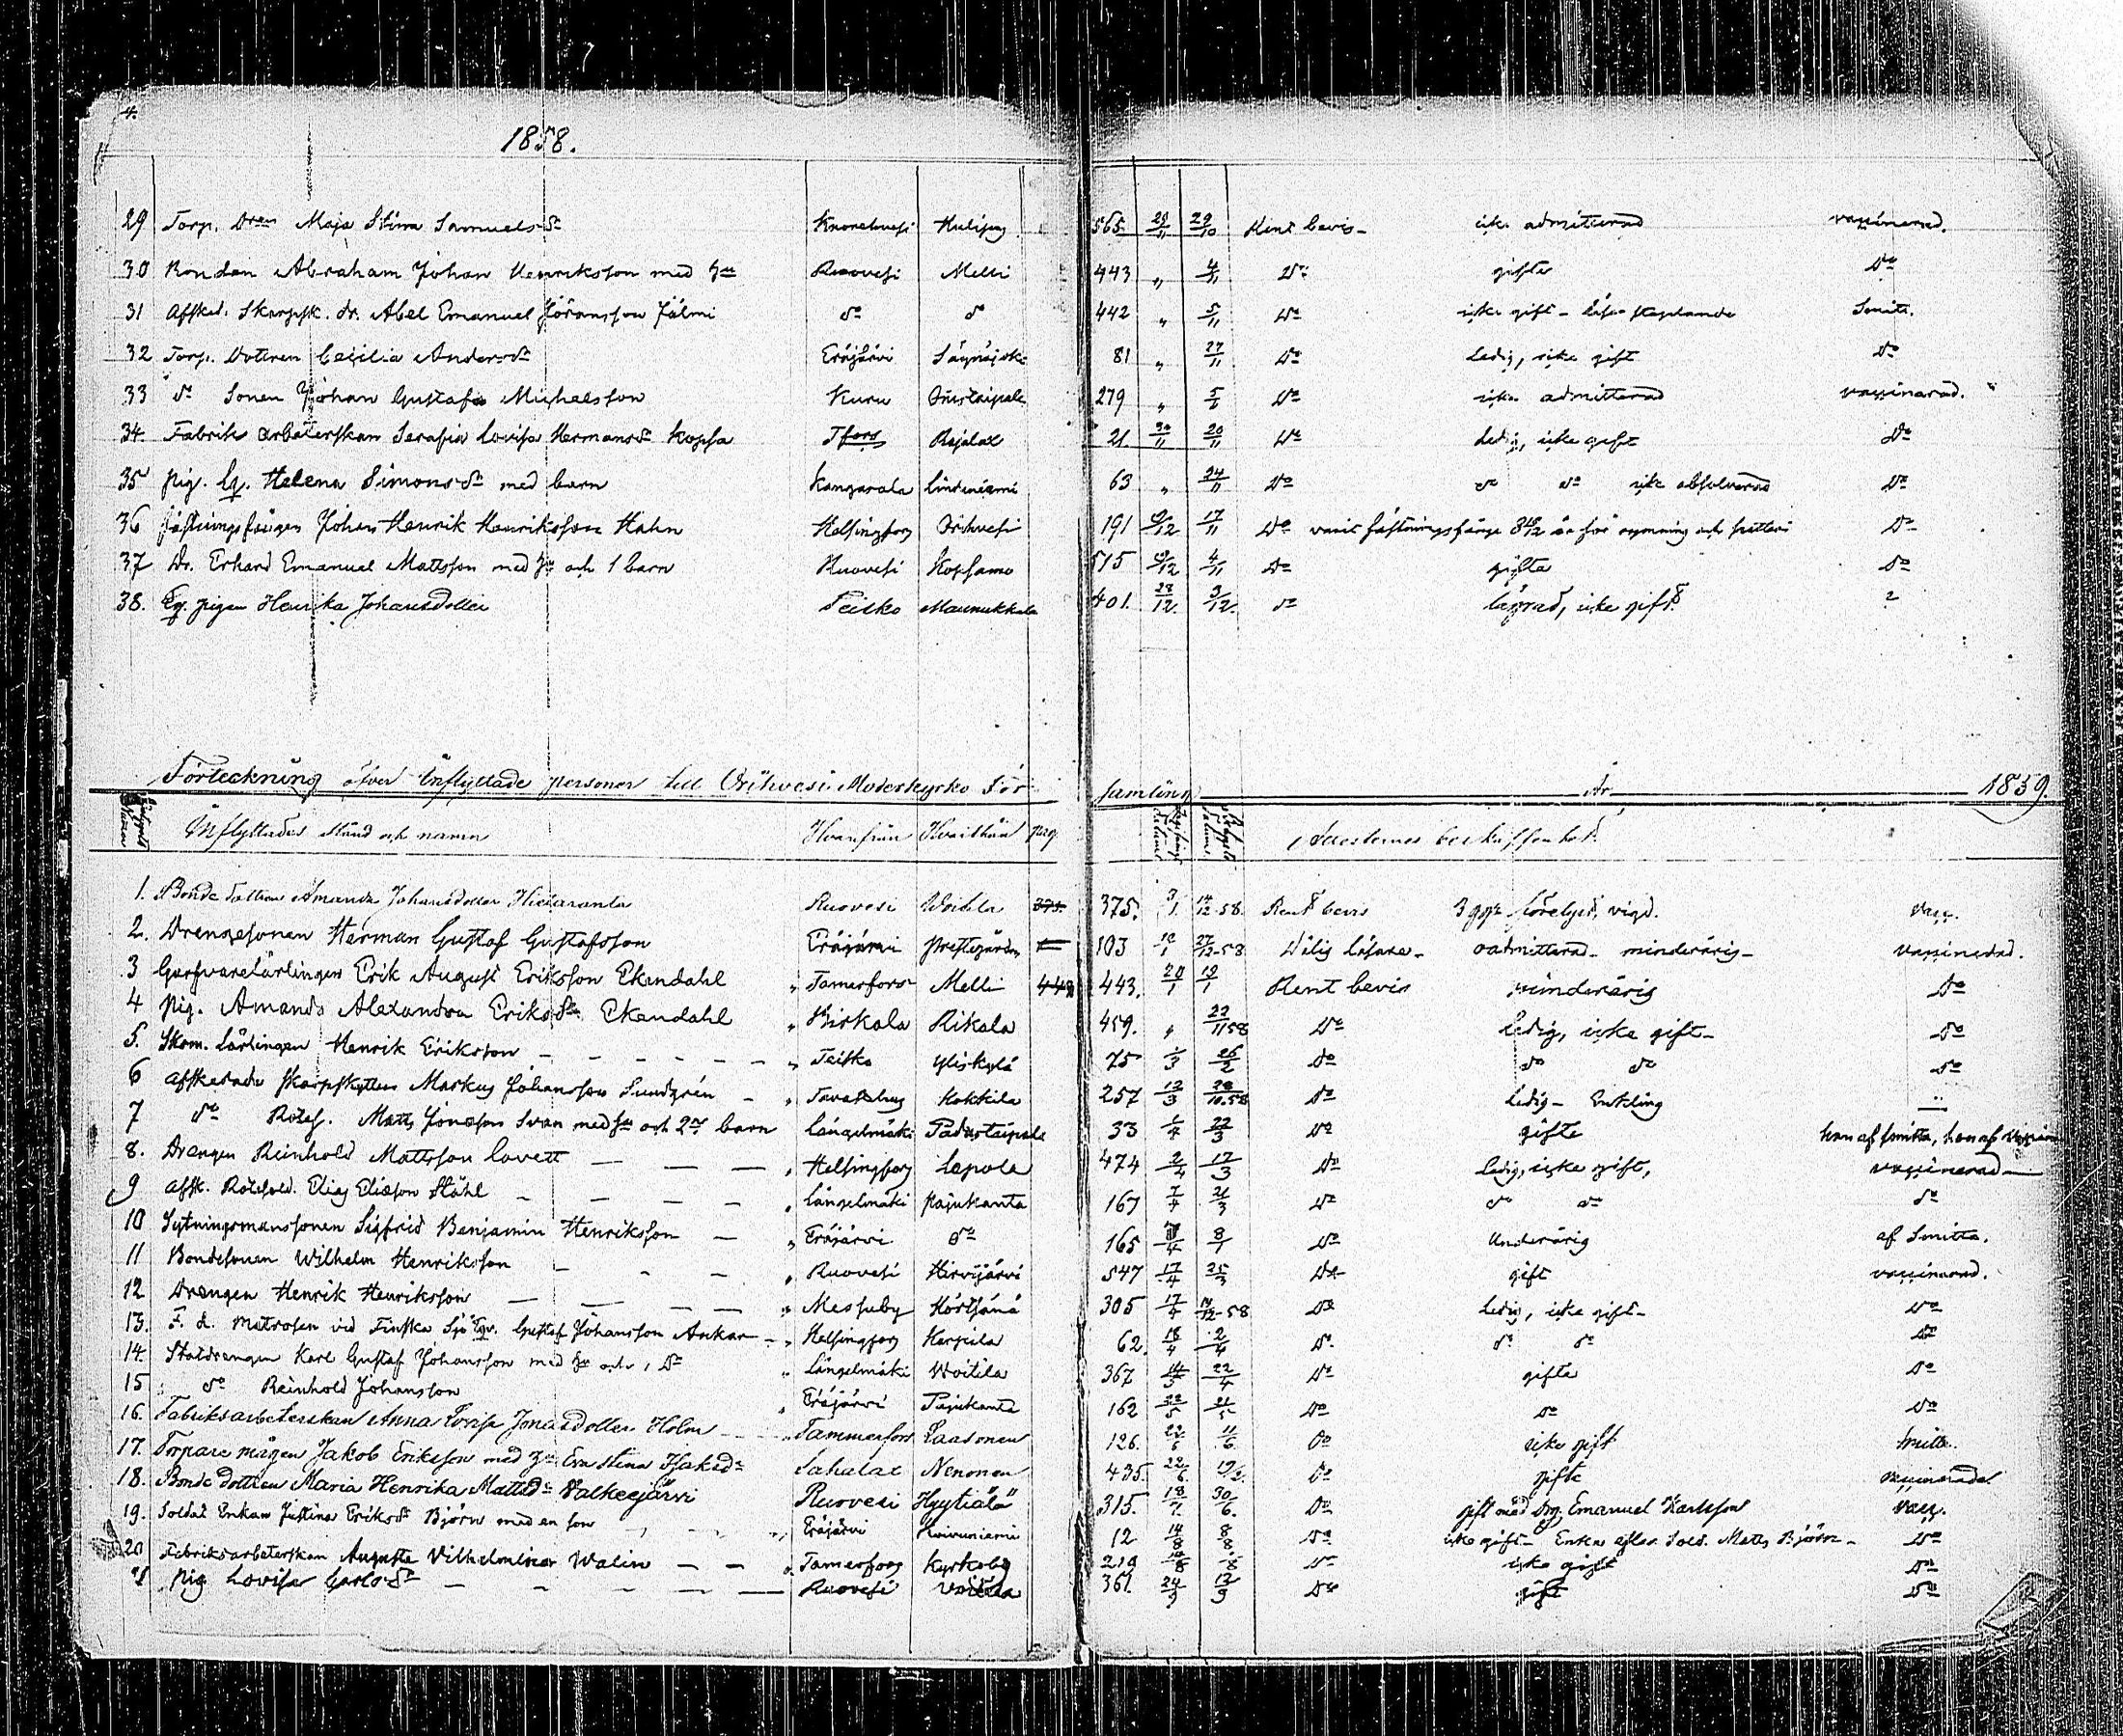 4.
1858.
29 Torp. Dren Maja Stina Samuelsdr Kuorehvesi 565. 29/11 29/10 Rent bevis - icke admitterad vaccinerad.
30 Abraham Johan Henriksson med hu Ruovesi Melli 443 " 4/11 Do gifta Do
31 Afsked. Skarpsk. dr. Abel Emanuel Göransson Jälmi do do 442 " 5/11 Do icke gift - Smitt.
32 Torp. Dottren Cecilia Andersdr Eräjärvi 81 " 27/11 Do ledig, icke gift Do
33 do Sonen Johan Gustaf Michelsson Kuru 279 " Do icke admitterad vaccinerad.
34. Fabriks arbeterskan Serafia Lovisa Hermansdr Kopsa Tfors 21. 30/11 20/11 Do ledig, icke gift Do
35 Pig. Eg. Helena Simonsdr med barn Kangasala Lindeniemi 63 " 24/11 Do do do icke absolverad Do
36 Johan Henrik Henriksson Hahn Helsingfors Orihvesi 191 17/11 Do varit fästningsfånge för rymning och Do
37 Dr. Erhard Emanuel Mattsson med hu och 1 barn Ruovesi Kopsamo 515 4/11 Do gifta Do
38. Eg. pigan Henrika Johansdotter Teisko Maunukkala 401. 3/12. do icke gift. 2
Förteckning öfver Inflyttade personer till Orihvesi Moderkyrko Församling År 1859.
Inflyttades stånd och namn Hvarifrån Hvarthän pag. Attesternes beskaffenhet.
1. Bonde dottren Amanda Johansdotter Hietaranta Ruovesi Woitila 375. 375. 3/1. 14/12-58. Rent bevis 3 ggr lörelyst, vigd. vacc.
2. Drengesonen Herman Gustaf Gustafsson Eräjärvi Prestegården 103 12/1 27/12-58 Dålig läsare - oadmitterad - minderårig - vaccinerad.
3 Garfvarelärlingen Erik August Eriksson Ekendahl " Tamerfors Melli 443. 20/1 19/1 Rent bevis minderårig Do
4 Pig. Amanda Alexandra Eriksdr Ekendahl " Birkala Rikala 459. " 22/11 58 Do ledig, icke gift - Do
5. Skom. lärlingen Henrik Eriksson " Teisko Yliskylä 75 1/3 26/2 do do do do
6 Afskedade skarpskytten Markus Johansson Sundgrén " Tavastehus Kokkila 257 12/3 28/10.58 Do ledig - Enkling
7 do Rotes. Matts Jönsson Svan med hu och 2ne barn Längelmäki Padustaipale 33 1/4 22/3 Do gifta han af smitta, hon af
8. Drengen Reinhold Mattsson Lovett " Helsingfors Lepola 474 2/4 17/3 Do ledig, icke gift, vaccinerad -
9 Afsk. Rotesold. Elias Eliasson Ståhl " Längelmäki Pajukanta 167 7/4 21/3 Do do do do
10 Sytningsmanssonen Sigfrid Benjamin Henriksson " Eräjärvi do 165 8/1 Do Underårig af Smitta.
11 Bondesonen Wilhelm Henriksson " Ruovesi Hirvijärvi 547 17/4 25/3 Do gift vaccinerad.
12 Drengen Henrik Henriksson " Messuby Körtsänä 305 17/4 14/12-58 Do ledig, icke gift - Do
13. F. d. Matrosen vid Finska Sjö Eqv. Gustaf Johansson Ankar " Helsingfors Karpila 62. 18/4 2/4 Do do do Do
14. Statdrengen Karl Gustaf Johansson med hu och 1 Dr " Längelmäki Woitila 367 22/4 Do gifta Do
15 do Reinhold Johansson " Eräjärvi Pajukanta 162 22/5 21/5 Do Do Do
16. Fabriksarbeterskan Anna Lovisa Jonasdotter Holm " Tammerfors Laasonen 126. 22/6 11/6. Do icke gift smitta.
17. Torpare mågen Jakob Eriksson med hu Eva Stina Isaksdr Sahalax Nenonen 435. 22/6. Do gifta vaccinerade
18. Bonde dottren Maria Henrika Mattsdr Valkeejärvi Ruovesi Hyytiälä 315. 18/7. 30/6. Do gift med drg. Emanuel Karlsson vacc.
19. Soldat Enkan Justina Eriksdr Björn med en son " Eräjärvi Koivuniemi 12 14/8 8/8 Do icke gift - Enka efter Sold. Matts Björn - Do
20 Fabriksarbeterskan Augusta Vilhelmina Walin " Tamerfors Kyrkoby 219 Do icke gift Do
21 Pig Lovisa Carlsdr Ruovesi Voitila 361. 24/9 12/9 Do gift Do